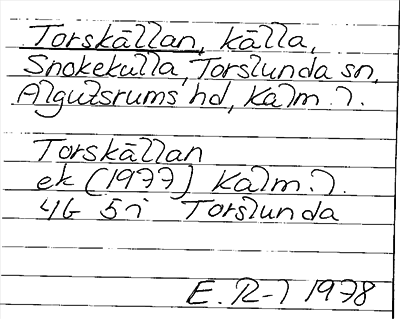 Torskällan, källa,
Snokekulla, Torslunda sn,
Algutsrums hd, Kalm. l.
Torskällan
ek (1977) Kalm. l.
4G 5i Torslunda
E. R-l 1978